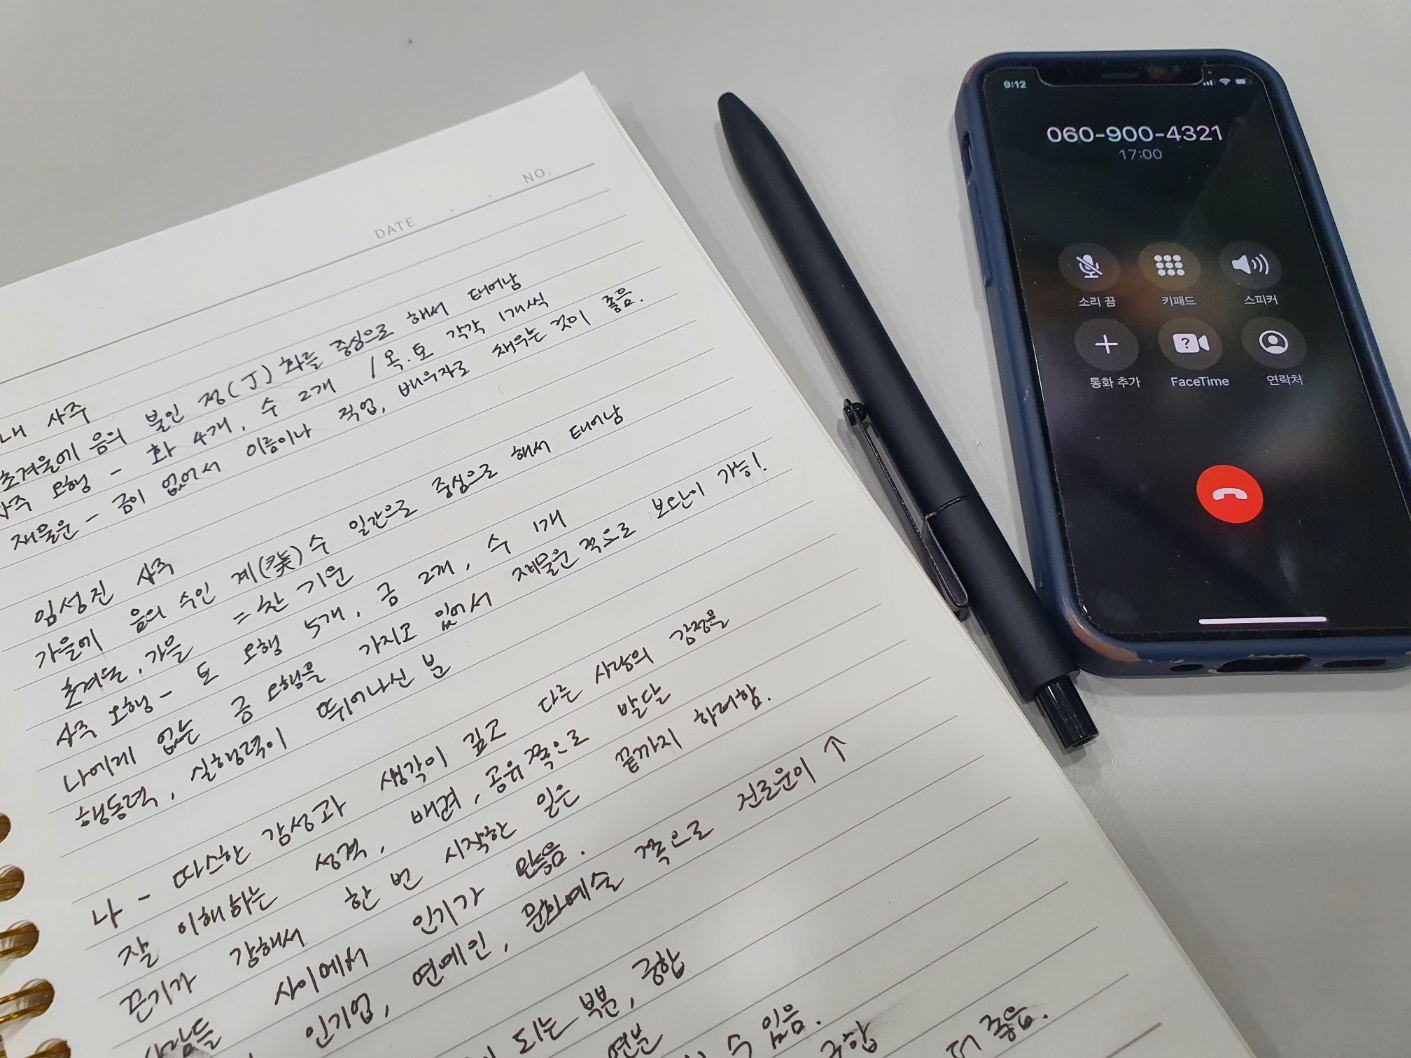 DATE . . NO.
내 사주
초겨울에 음의 불인 정(丁)화를 중심으로 해서 태어남
사주 오행 - 화 4개, 수 2개 / 목·토 각각 1개씩
재물운 - 금이 없어서 이름이나 직업, 배우자로 채우는 것이 좋음.
임성진 사주
가을에 음의 수인 계(癸)수 일간으로 중심으로 해서 태어남
초겨울, 가을 = 찬 기운
사주 오행 - 토 오행 5개, 금 2개, 수 1개
나에게 없는 금 오행을 가지고 있어서 재물운 쪽으로 보완이 가능!.
행동력, 실행력이 뛰어나신 분
나 - 따스한 감성과 생각이 깊고 다른 사람의 감정을
잘 이해하는 성격, 배려, 공유 쪽으로 발달
끈기가 강해서 한 번 시작한 일은 끝까지 하려함.
사람들 사이에서 인기가 많음.
인기업, 연예인, 문화예술 쪽으로 진로운이 ↑
되는 부분, 궁합
연분
수 있음.
궁합
더 좋음.
9:12
060-900-4321
17:00
소리 끔 키패드 스피커
통화 추가 FaceTime 연락처